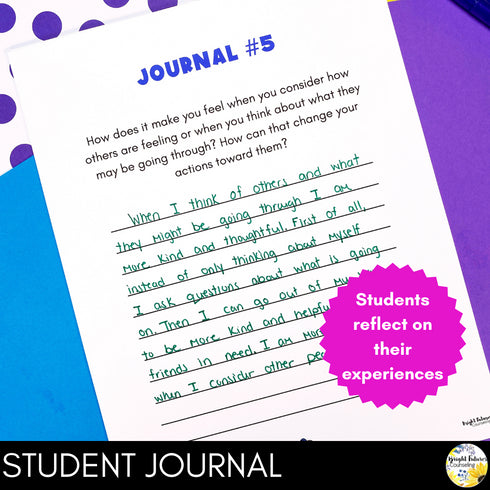 JOURNAL #5
How does it make you feel when you consider how
others are feeling or when you think about what they
may be going through? How can that change your
actions toward them?
When I think of others and what
they might be going through I am
more kind and thoughtful. First of all,
instead of only thinking about myself
I ask questions about what is going
on. Then I can go out of my
to be more kind and helpful
friends in need. I am
when I consider other
Students
reflect on
their
experiences
Bright Futures
Counseling
STUDENT JOURNAL
Bright Futures
Counseling